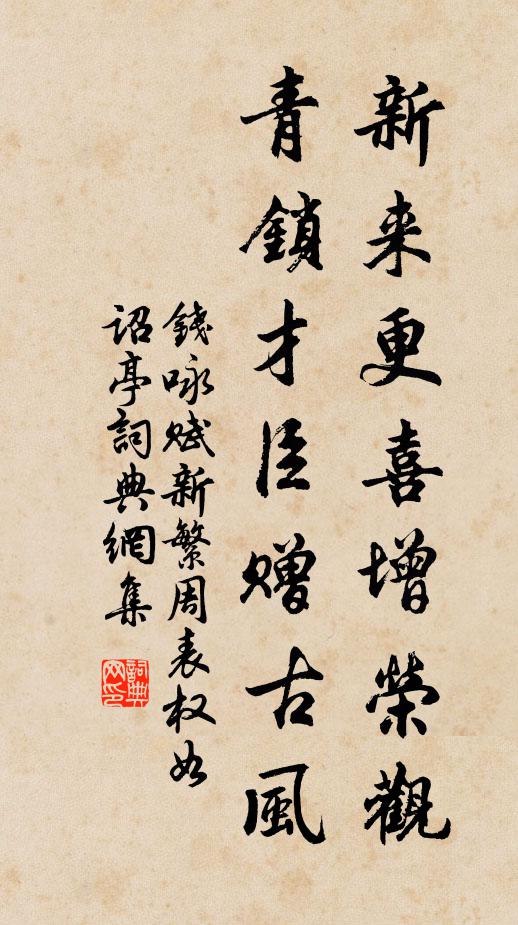 新来更喜增荣觀
青鎖才臣赠古風
錢咏赋新繁周表权如
詔亭詞典網集
詞典网印